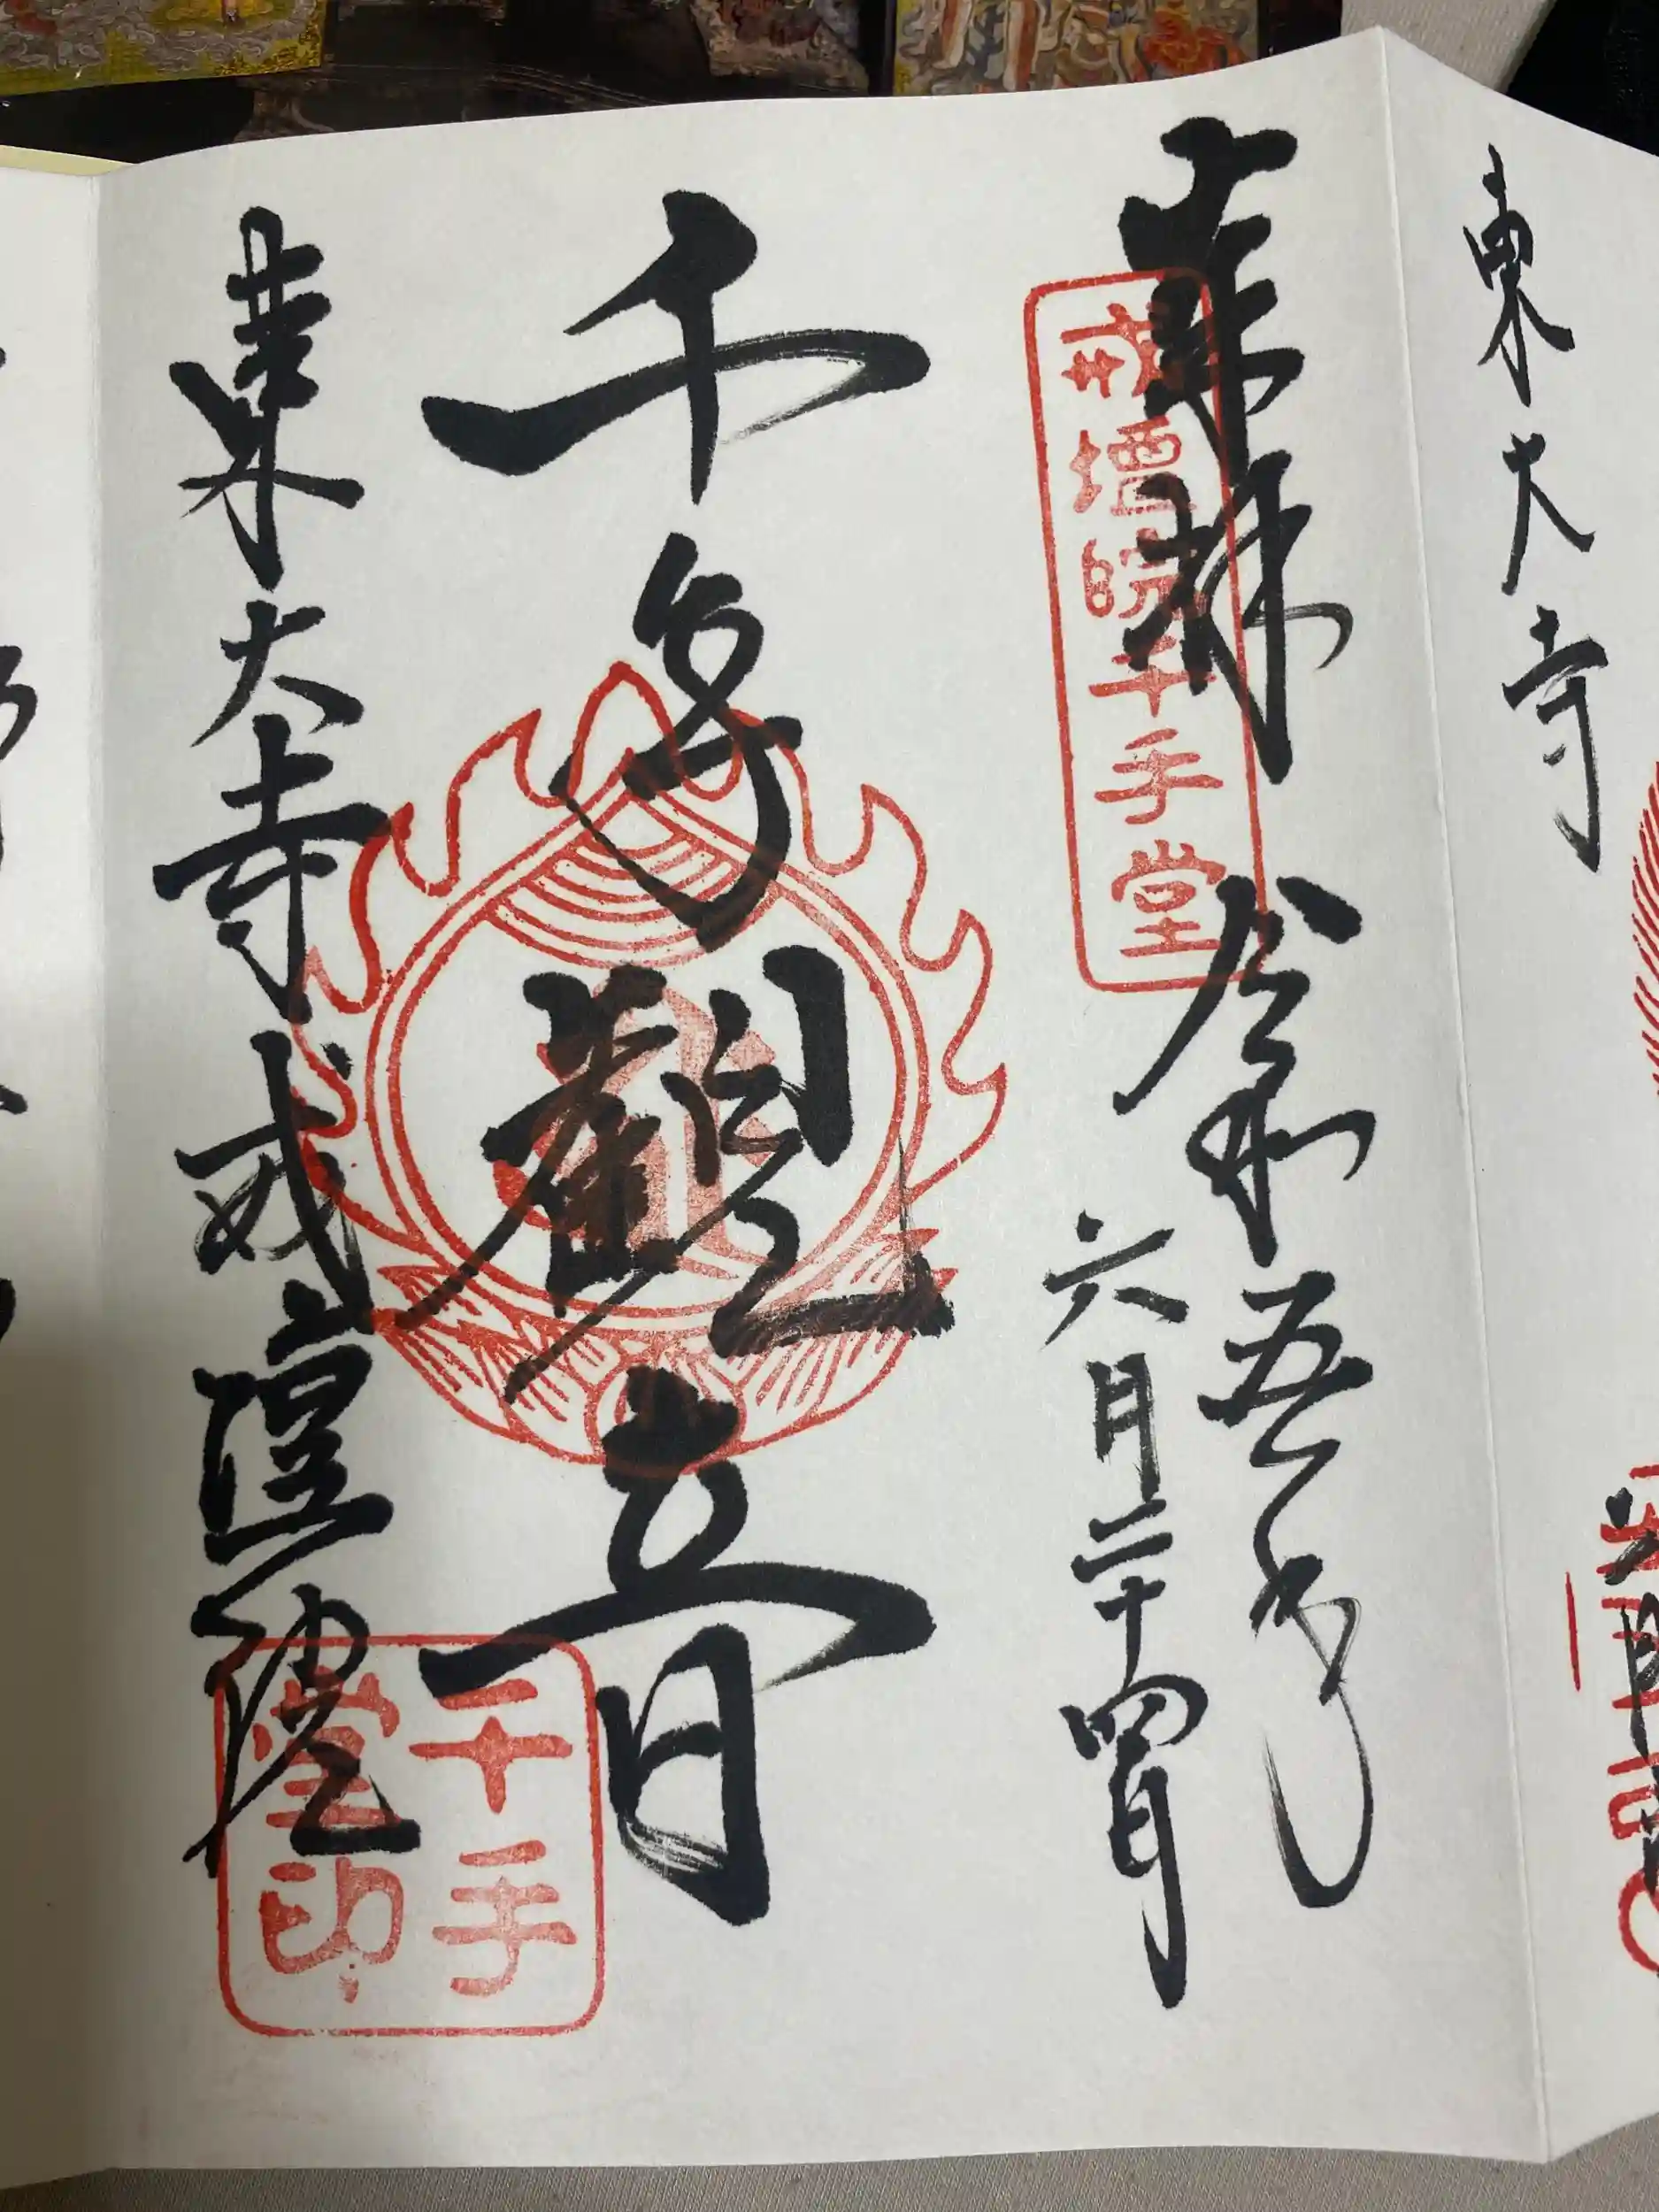 東大寺
奉拝 令和五年
六月二十四日
戒壇院千手堂
千手観音
東大寺戒壇院
千手
堂印